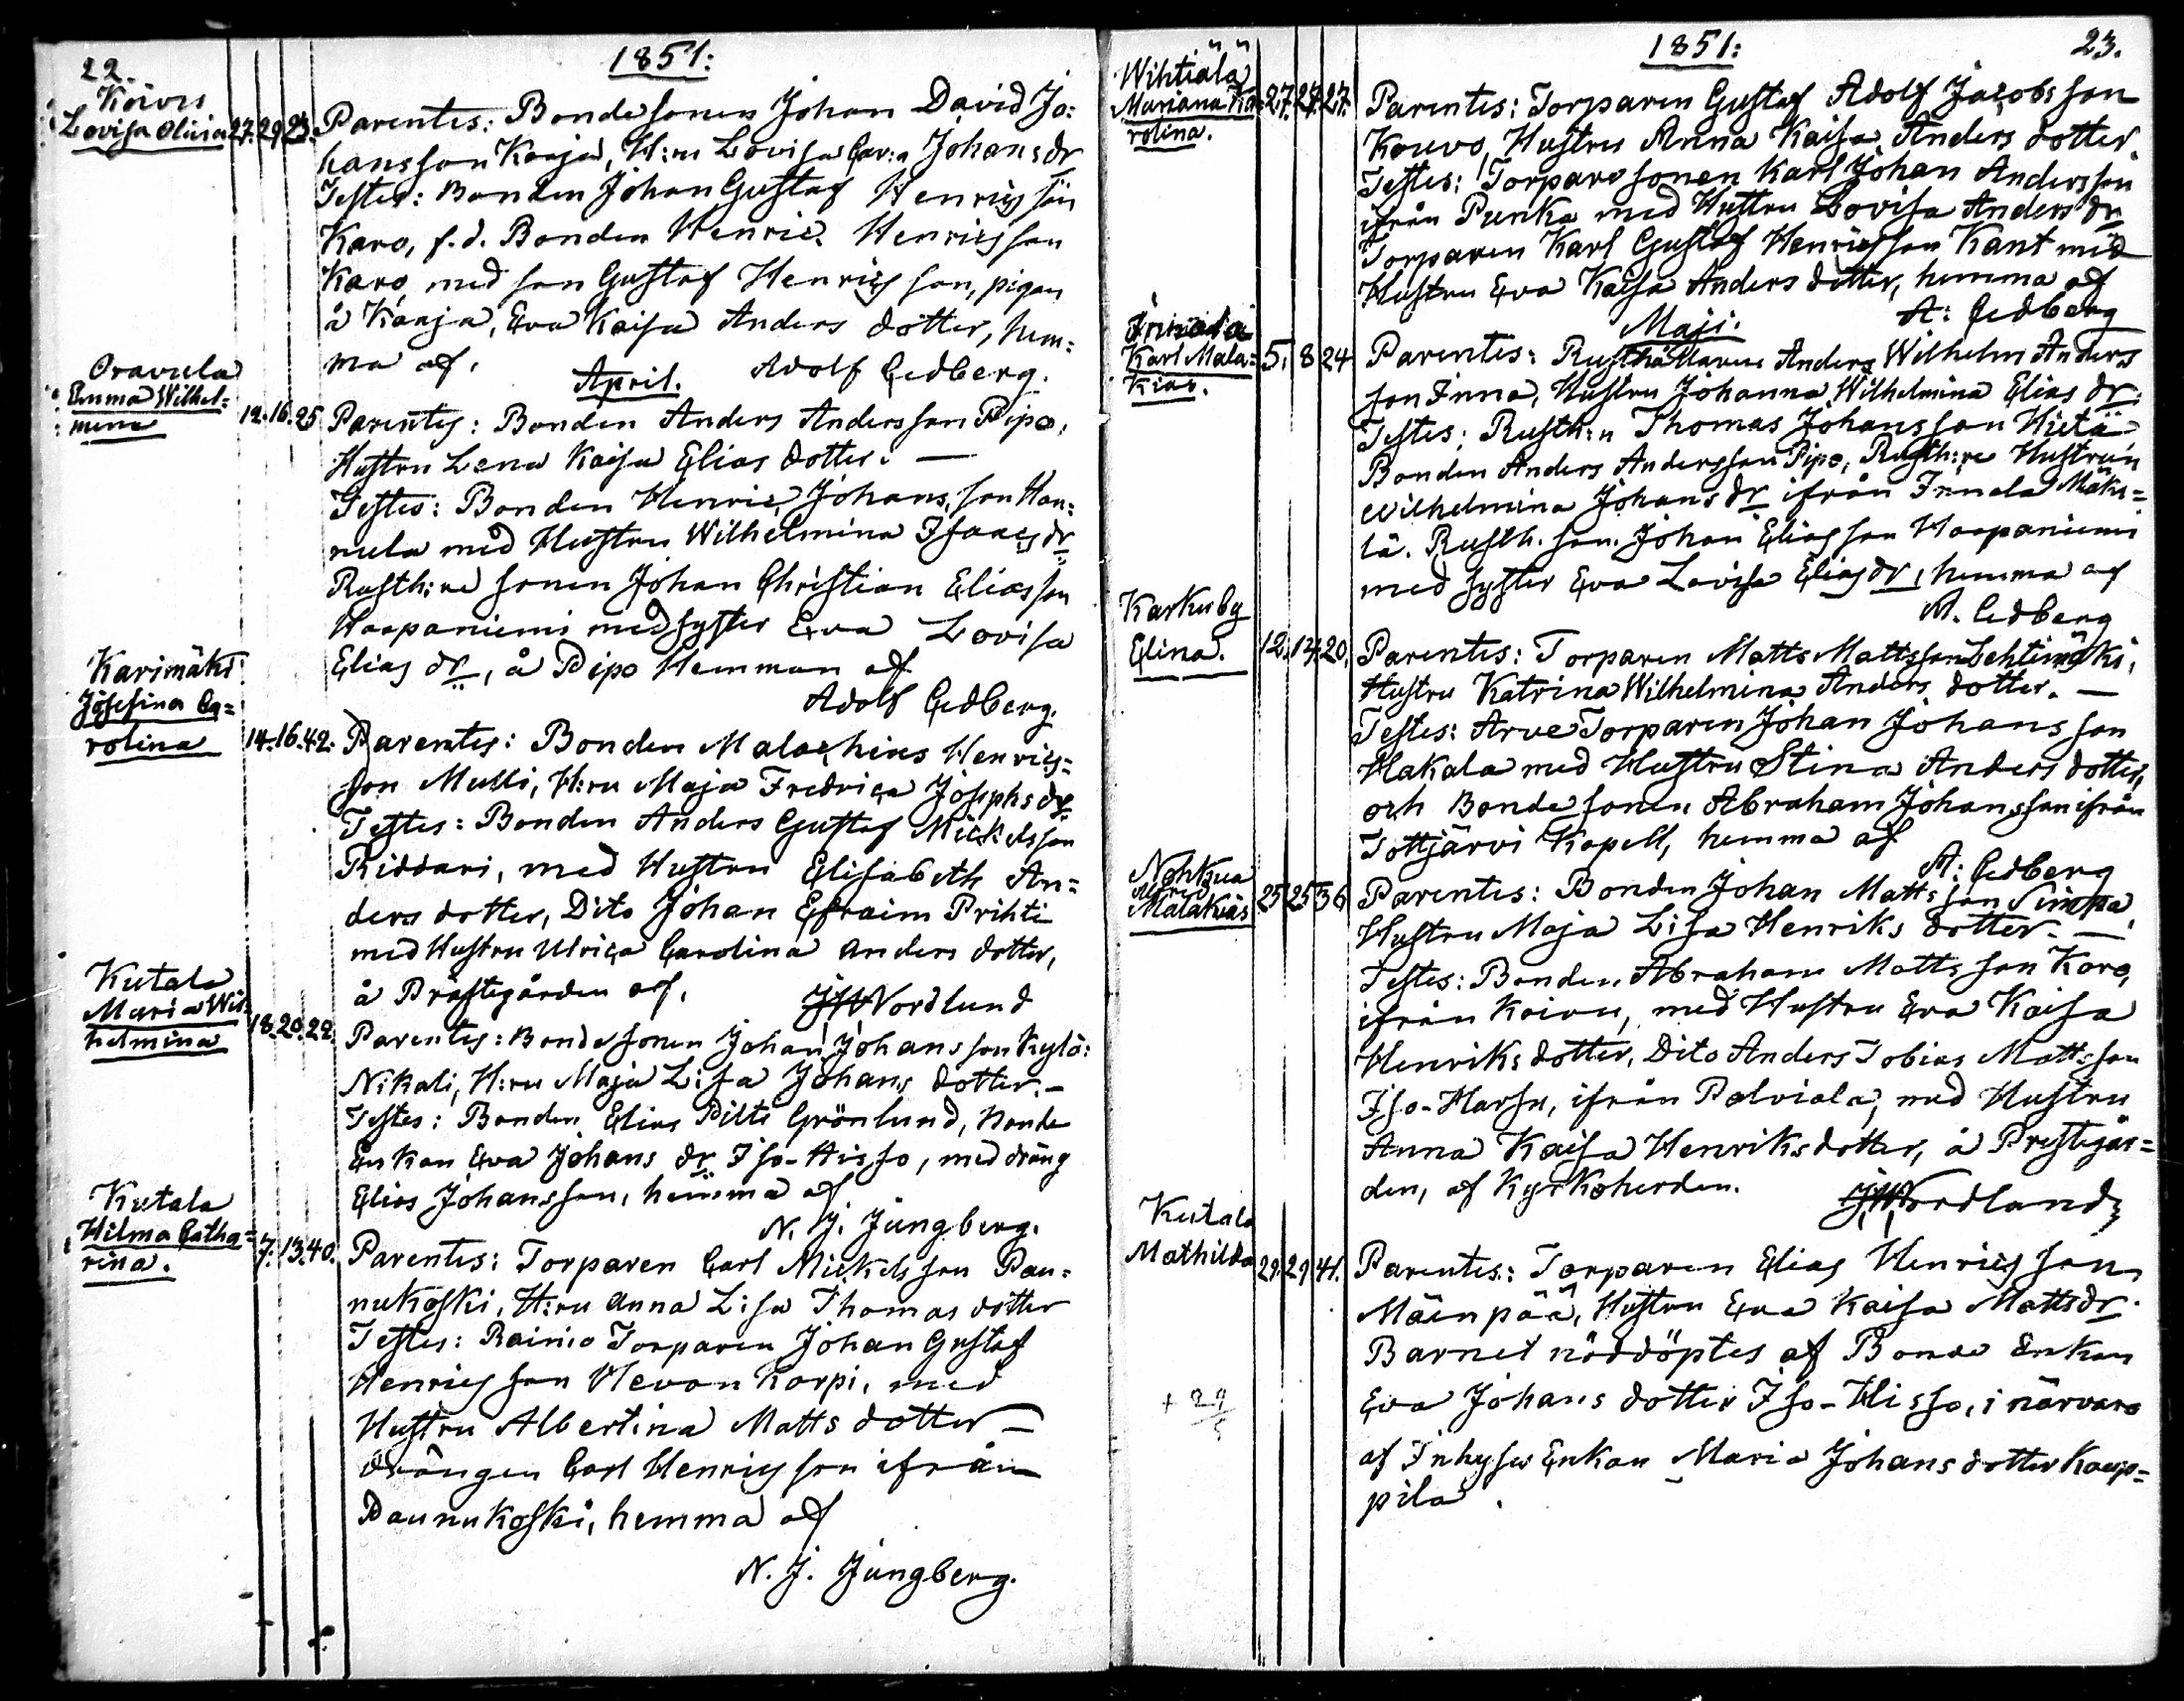 22.
1851:
Koivu
Lovisa Olivia 27. 29. 23.
Parentes: Bondesonen Johan David Jo:
hansson Kaaja, H:ru Lovisa Car:a Johans dr
Testes: Bonden Johan Gustaf Henricsson
Karo, f.d. Bonden Henric Henricsson
Karo med son Gustaf Henricsson, pigan
å Kaaja, Eva Kaisa Anders dotter, hem:
ma af. Adolf Cedberg.
April.
Oravula
Emma Wilhel=
mina
12. 16. 25
Parentes: Bonden Anders Andersson Pipo,
Hustru Lena Kaisa Elias dotter. —
Testes: Bonden Henric Johansson Han:
nula med Hustru Wilhelmina Isaacs dr
Rusth:re sonen Johan Christian Eliasson
Haapaniemi med syster Eva Lovisa
Elias dr, å Pipo Hemman af
Adolf Cedberg.
Karimäki
Josefina Ca=
rolina 14. 16. 42.
Parentes: Bonden Malachius Henrics=
son Mulli, H:ru Maja Fredrica Josephs dr
Testes: Bonden Anders Gustaf Mickelsson
Riddari, med Hustru Elisabeth An=
ders dotter, Dito Johan Efraim Prihti
med Hustru Ulrica Carolina Anders dotter,
å Prästegården af. JW Nordlund
Kutala
Maria Wil=
helmina 18. 20. 22.
Parentes: Bondesonen Johan Johansson Kylä:
Nikali, H:ru Maja Lisa Johans dotter. –
Testes: Bonden Elias Piltti Grönlund, Bonde
Enkan Eva Johans dr Iso-Hisso, med dräng
Elias Johansson, hemma af
N. J. Jungberg.
Kutala
Wilma Catha=
rina. 7. 13. 40.
Parentes: Torparen Carl Mickelsson Pau=
nukoski, H:ru Anna Lisa Thomas dotter
Testes: Rainio Torparen Johan Gustaf
Henricsson Hevonkorpi, med
Hustru Albertina Matts dotter –
Drängen Carl Henricsson ifrån
Paunukoski, hemma af
N. J. Jungberg.
1851:
23.
Wihtiälä
Mariana Ka=
rolina.
27. 27. 27.
Parentes: Torparen Gustaf Adolf Jacobsson
Kouvo, Hustru Anna Kaisa Anders dotter.
Testes: Torpare sonen Karl Johan Andersson
ifrån Punka med Hustru Lovisa Anders dr
Torparen Karl Gustaf Henricsson Kant med
Hustru Eva Kaisa Anders dotter, hemma af
A: Cedberg
Maji.
Karl Mala=
kias.
5. 8 24
Parentes: Rusthållaren Anders Wilhelm Anders
son Inna, Hustru Johanna Wilhelmina Elias dr
Testes: Rusth:n Thomas Johansson Hietä
Bonden Anders Andersson Pipo, Rusth:re Hustrun
Wilhelmina Johans dr ifrån Innala Mäke=
lä. Rusth. son. Johan Eliasson Haapaniemi
med syster Eva Lovisa Elias dr, hemma af
A. Cedberg
Karkuby
Elina. 12. 14. 20.
Parentes: Torparen Matts Mattsson Lehtimäki,
Hustru Katrina Wilhelmina Anders dotter. —
Testes: Arve Torparen Johan Johansson
Hakala med Hustru Stina Anders dotter,
och Bonde sonen Abraham Johansson ifrån
Tottjärvi Kapell, hemma af
A: Cedberg
Nohkua
Alfred
Malakias 25 25 36
Parentes: Bonden Johan Mattsson Simpa
Hustru Maja Lisa Henriks dotter. —
Testes: Bonden Abraham Mattsson Karo,
ifrån Koivu, med Hustru Eva Kaisa
Henriks dotter, Dito Anders Tobias Mattsson
Iso-Harsu, ifrån Palviala, med Hustru
Anna Kaisa Henriksdotter, å Prestegår=
den, af Kyrkoherden. JW Nordlund
Kutala
Mathilda 29. 29 41.
Parentes: Torparen Elias Henricsson
Mäenpää, Hustru Eva Kaisa Matts dr.
Barnet nöddöptes af Bonde Enkan
Eva Johans dotter Iso-Hisso, i närvaro
af Inhyses Enkan Maria Johans dotter Kaup=
pila.
+ 29/5